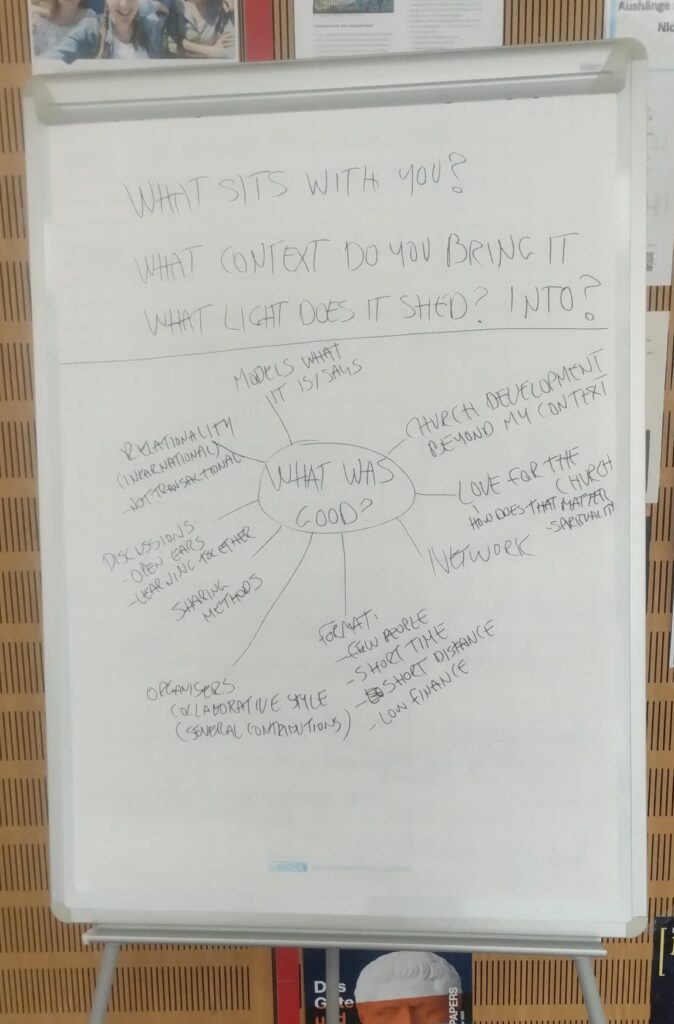 Aushänge
WHAT SITS WITH YOU?
WHAT CONTEXT DO YOU BRING IT
INTO?
WHAT LIGHT DOES IT SHED?
MODELS WHAT
IT IS/SAYS
RELATIONALITY....
(INKARNATIONAL)
-NOT TRANSACTIONAL
DISCUSSIONS:
- OPEN EARS
- LEARNING TOGETHER
SHARING
METHODS
ORGANISERS
COLLABORATIVE STYLE
(SEVERAL CONTRIBUTIONS)
WHAT WAS
GOOD?
FORMAT:
- FEW PEOPLE
- SHORT TIME
- SHORT DISTANCE
- LOW FINANCE
CHURCH DEVELOPMENT
BEYOND MY CONTEXT
LOVE FOR THE
CHURCH
HOW DOES THAT MATTER
- SPIRITUALITY
NETWORK
LANDRÉ
Das
Gute
und
PAPERS